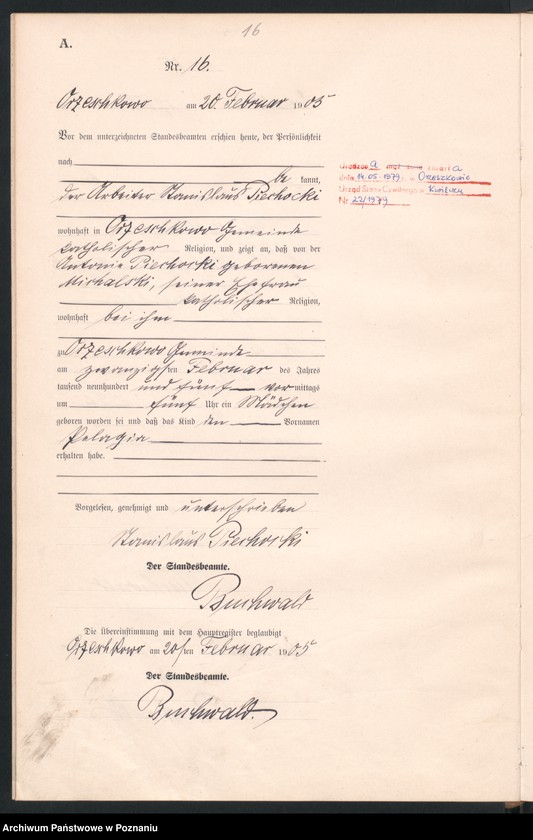 16
A.
Nr. 16.
Orzeschkowo am 20. Februar 1905
Vor dem unterzeichneten Standesbeamten erschien heute, der Persönlichkeit
nach
be kannt,
der Arbeiter Stanislaus Piechocki
wohnhaft in Orzeschkowo Gemeinde
katholischer Religion, und zeigt an, daß von der
Antonie Piechocki geborenen
Michalski, seiner Ehefrau
katholischer Religion,
wohnhaft bei ihm
zu Orzeschkowo Gemeinde
am zwanzigsten Februar des Jahres
tausend neunhundert und fünf vor mittags
um fünf Uhr ein Mädchen
geboren worden sei und daß das Kind den Vornamen
Pelagia
erhalten habe.
Vorgelesen, genehmigt und unterschrieben
Stanislaus Piechocki
Der Standesbeamte.
Buchwald
Die Übereinstimmung mit dem Hauptregister beglaubigt
Orzeschkowo am 20 ten Februar 1905
Der Standesbeamte.
Buchwald.
a zmarł a
dnia 14.05.1979 r. w Orzeszkowie
Urząd Stanu Cywilnego w Kwilczu
Nr 22/1979
Archiwum Państwowe w Poznaniu